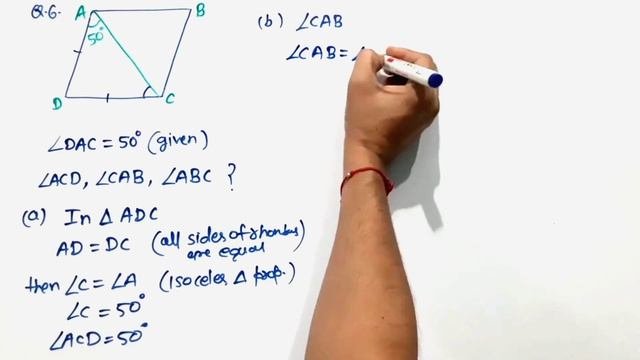 Q.6.
A
B
50°
D
C
∠DAC = 50° (given)
∠ACD, ∠CAB, ∠ABC ?
(a) In Δ ADC
AD = DC (all sides of rhombus are equal
then ∠C = ∠A (isoceles Δ prop.)
∠C = 50°
∠ACD = 50°
(b) ∠CAB
∠CAB = ∠